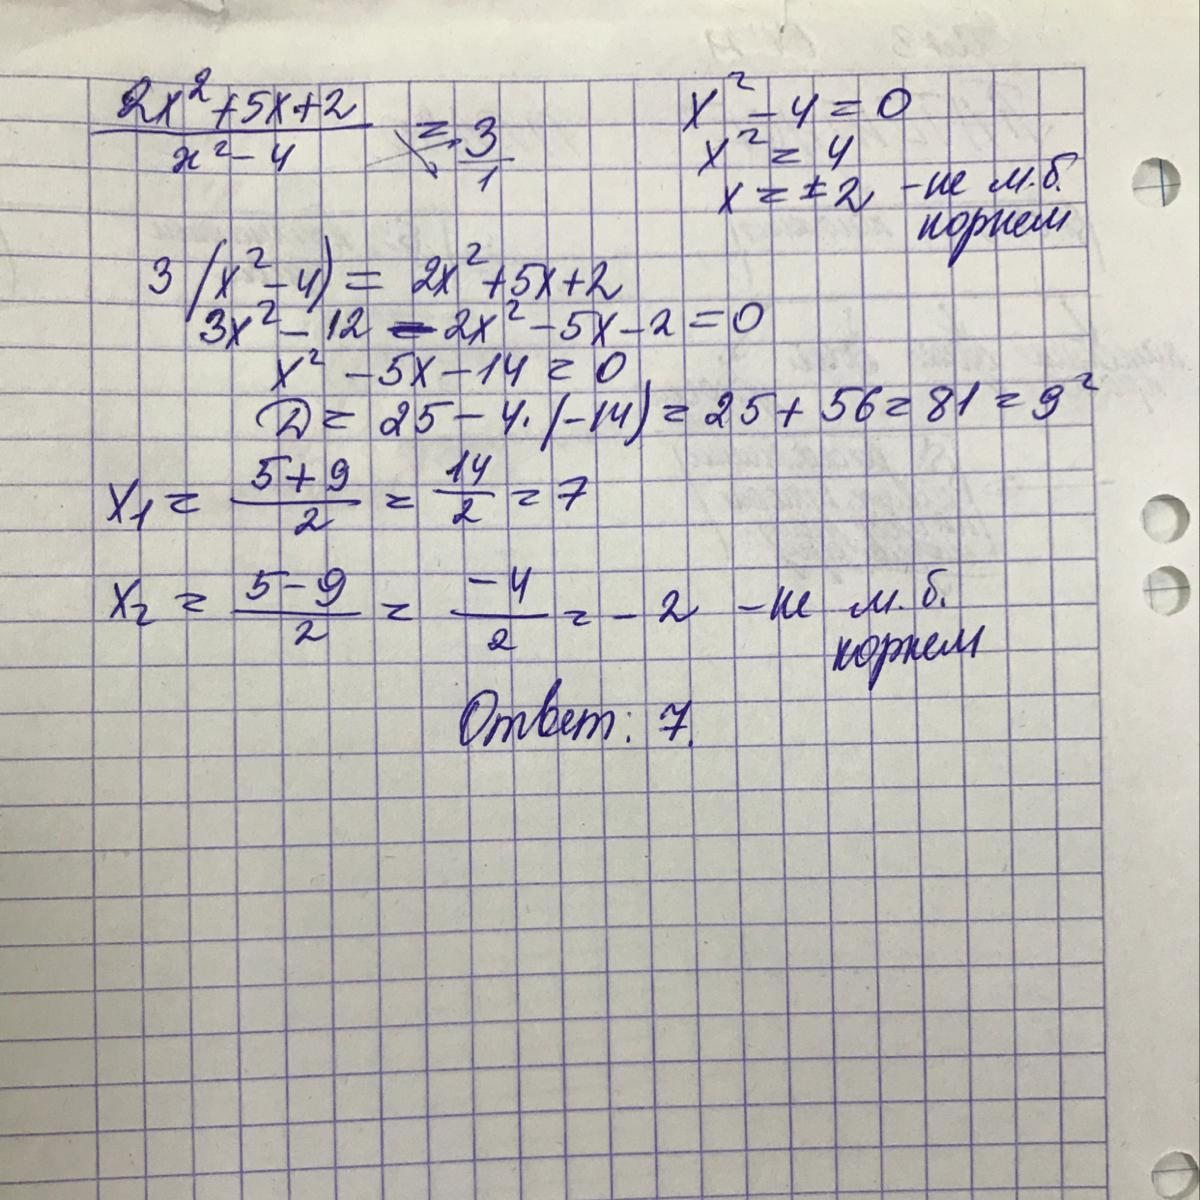 2x²+5x+2 / x²-4 = 3/1
x²-4=0
x²=4
x=±2 -не м.б.
корнем
3(x²-4)=2x²+5x+2
3x²-12-2x²-5x-2=0
x²-5x-14=0
D=25-4·(-14)=25+56=81=9²
x₁=5+9/2=14/2=7
x₂=5-9/2=-4/2=-2 -не м.б.
корнем
Ответ: 7.